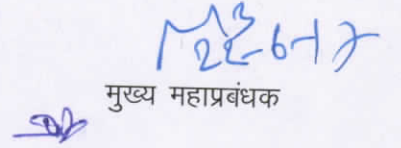 22-6-17
मुख्य महाप्रबंधक